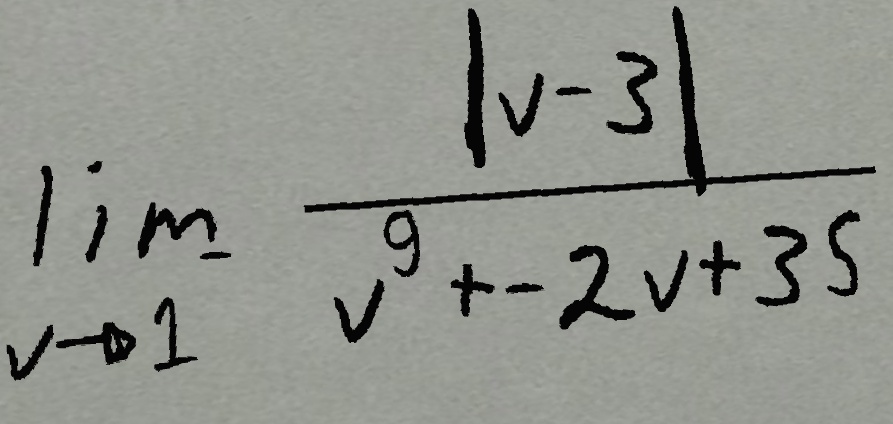 \lim_{v \to 1} \frac{|v-3|}{v^9+-2v+35}